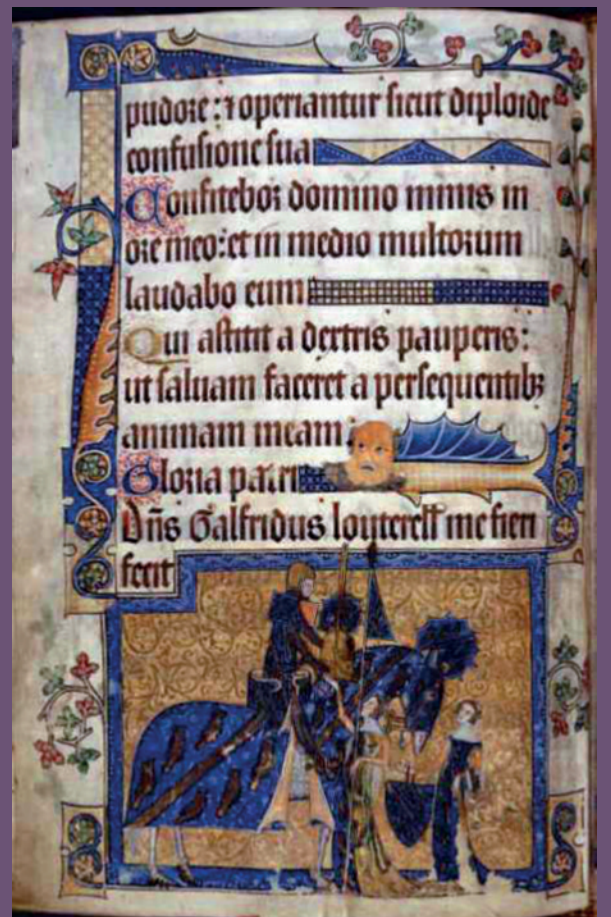 pudore : ⁊ operiantur sicut diploide
confusione sua
Confitebor domino nimis in
ore meo : et in medio multorum
laudabo eum
Qui astitit a dextris pauperis :
ut saluam faceret a persequentibꝫ
animam meam :
Gloria patri
Dn̄s Galfridus louterell me fieri
fecit